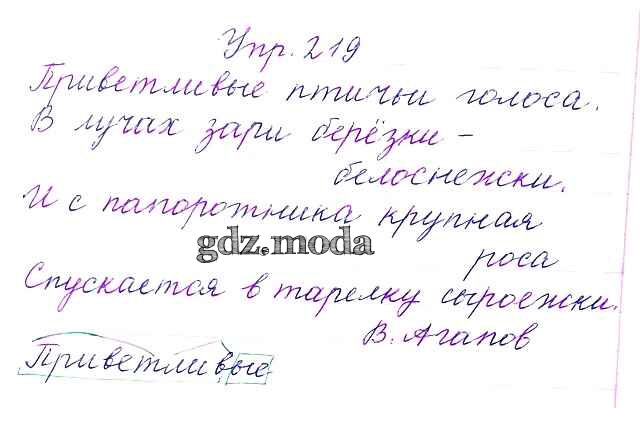 Упр. 219
Приветливые птичьи голоса.
В лучах зари берёзки -
белоснежки.
И с папоротника крупная
gdz.moda
роса
Спускается в тарелку сыроежки.
В. Агапов
Приветливые